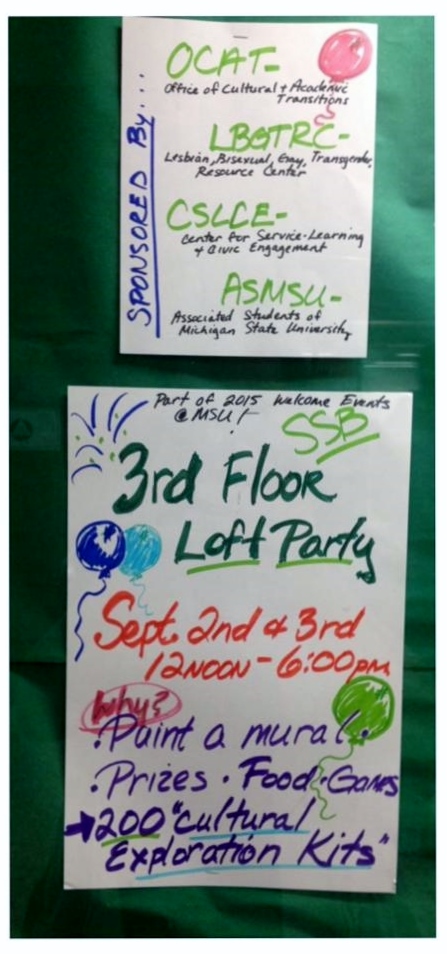 SPONSORED By...
OCAT-
Office of Cultural & Academic
Transitions
LBGTRC-
Lesbian, Bisexual, Gay, Transgender,
Resource Center
CSLCE-
Center for Service-Learning
& Civic Engagement
ASMSU-
Associated Students of
Michigan State University
Part of 2015 Welcome Events
@MSU!
SSB
3rd Floor
Loft Party
Sept. 2nd & 3rd
12NOON - 6:00pm
Why?
• Paint a mural •
• Prizes • Food • Games
→ 200 "cultural
Exploration Kits"